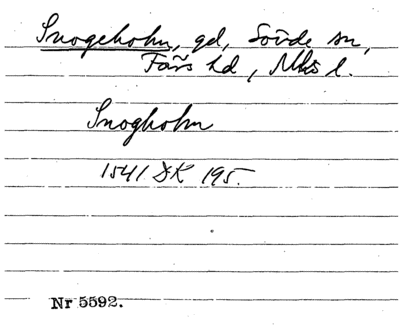 Snogeholm, gd, Sövde sn,
Färs hd, Mhs l.
Snogholm
1541 DK 195.
Nr 5592.